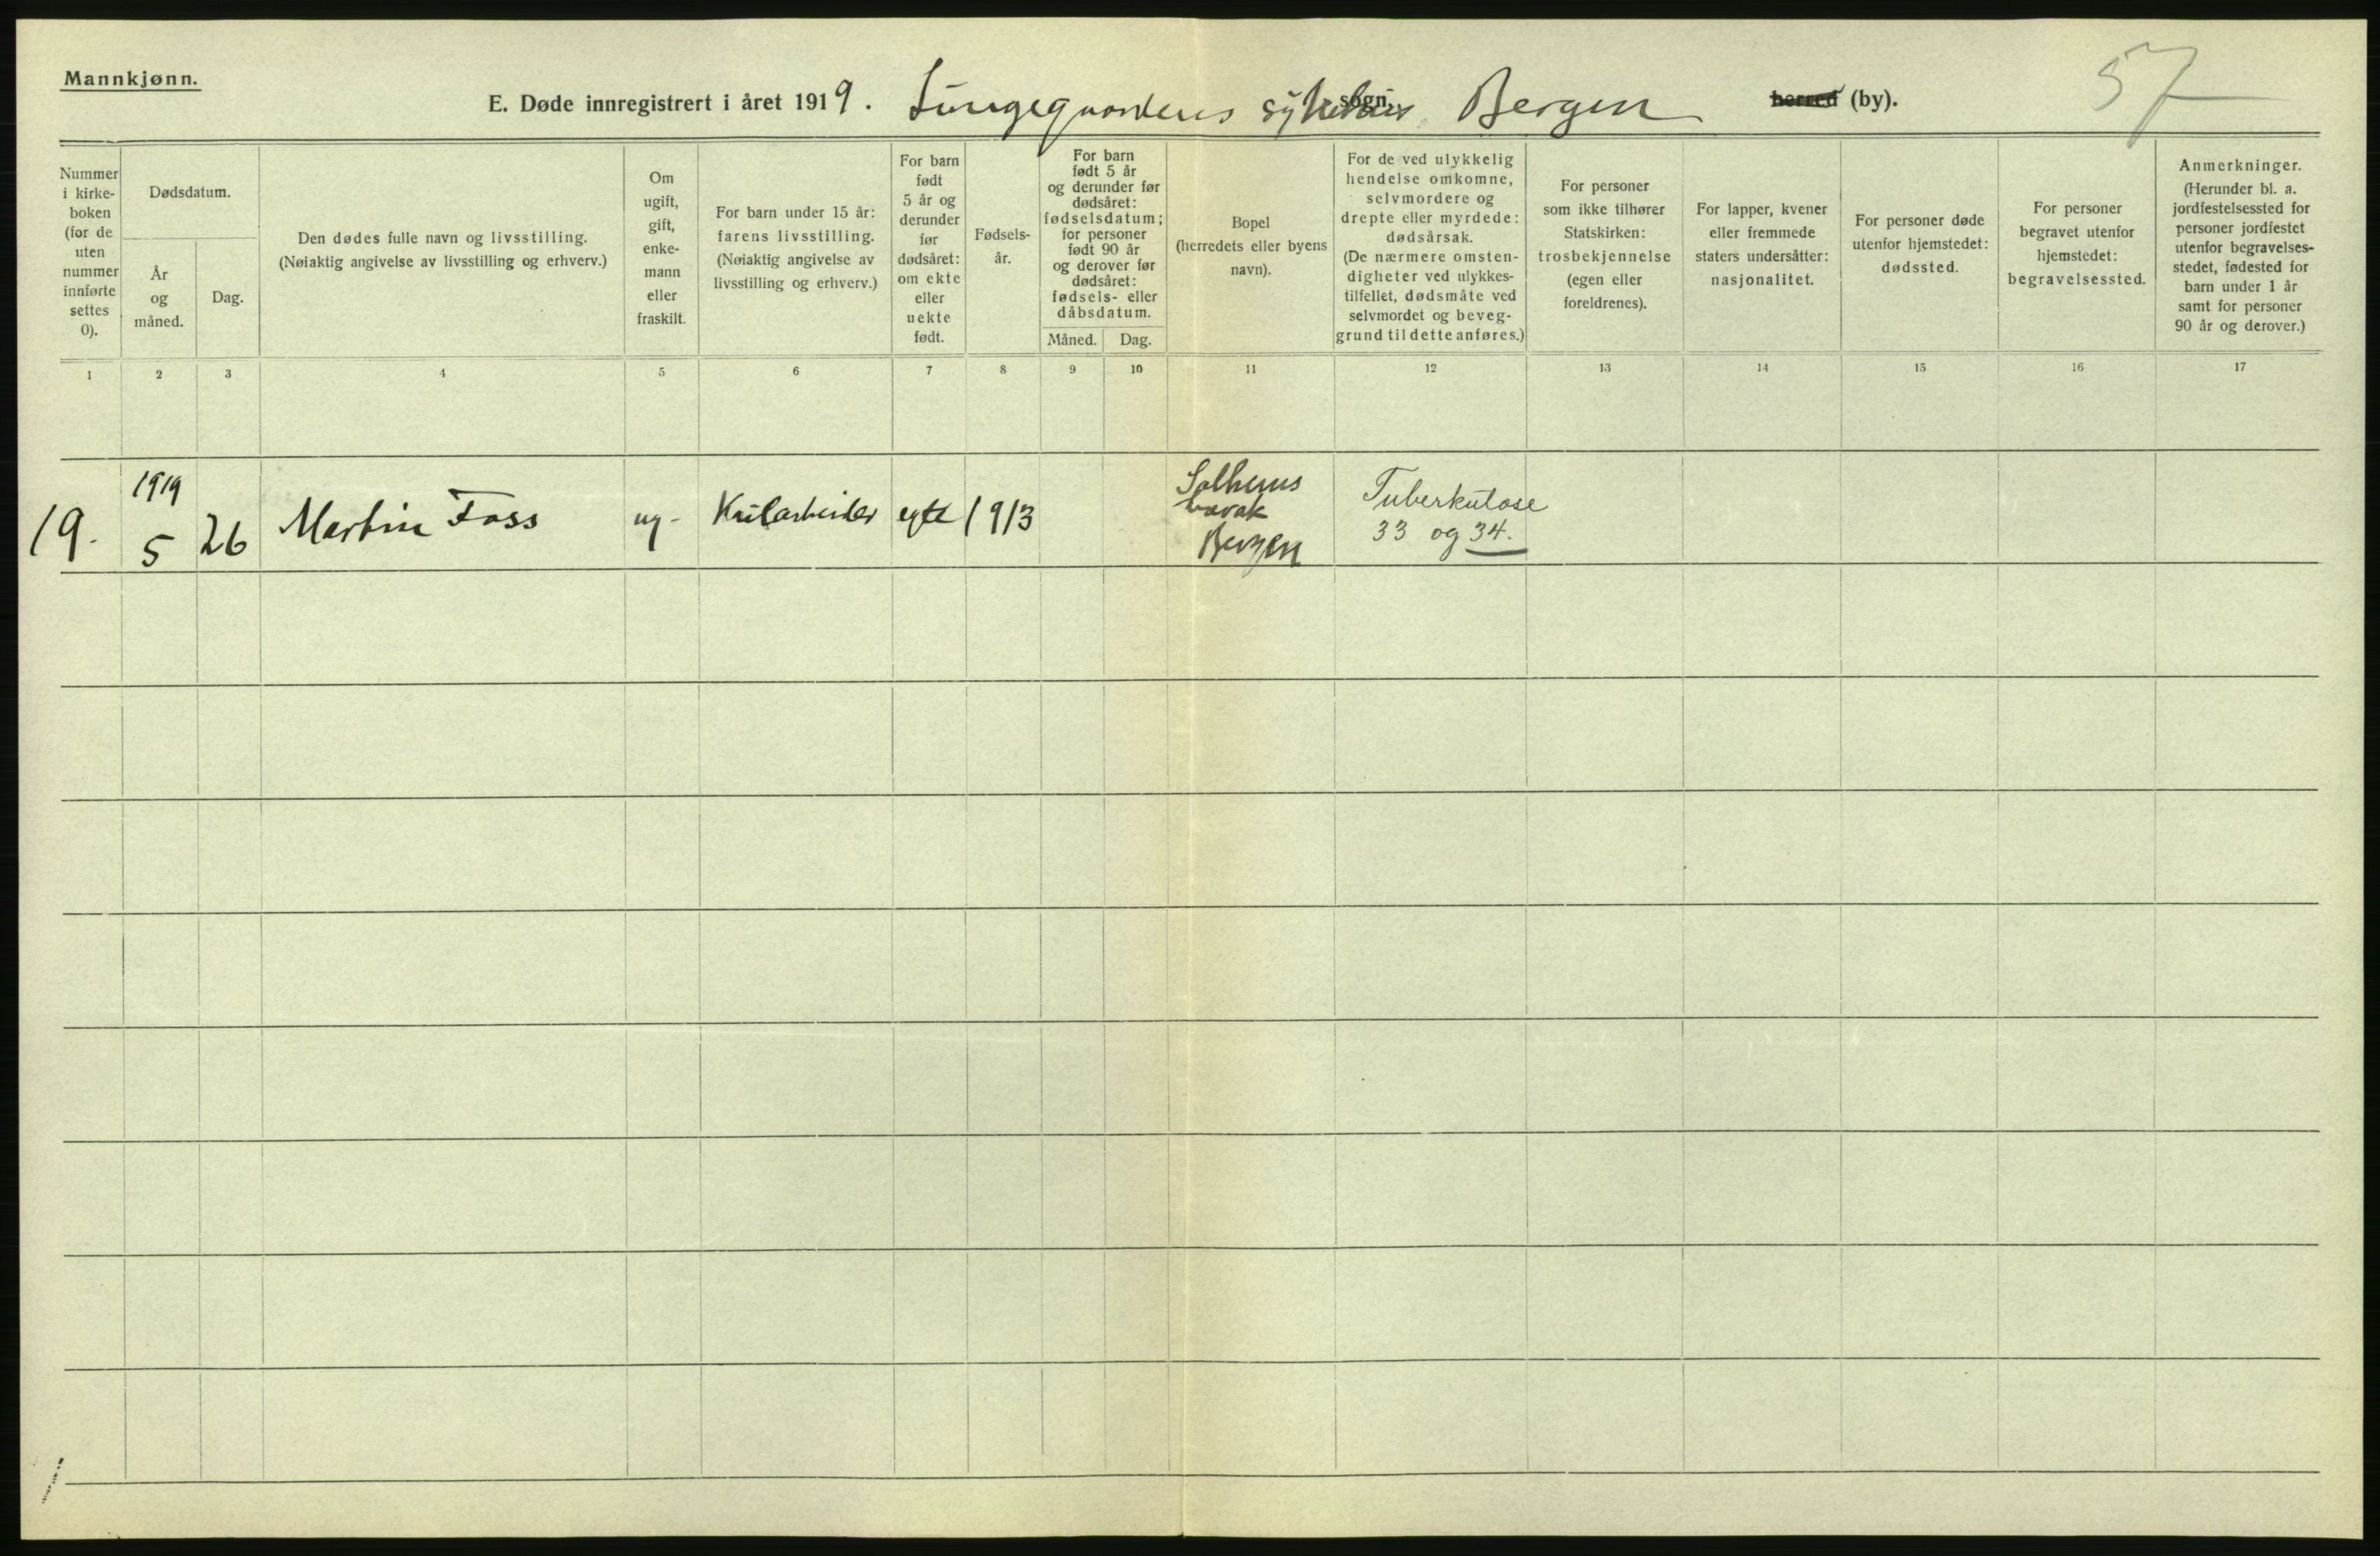 Mannkjønn.
57
E. Døde innregistrert i året 1919. Lungegaardens sykehus sogn, Bergen herred (by).
Nummer
i kirke-
boken
(for de
uten
nummer
innførte
settes
0).
Dødsdatum.
År
og
måned.
Dag.
Den dødes fulle navn og livsstilling.
(Nøiaktig angivelse av livsstilling og erhverv.)
Om
ugift,
gift,
enke-
mann
eller
fraskilt.
For barn under 15 år:
farens livsstilling.
(Nøiaktig angivelse av
livsstilling og erhverv.)
For barn
født
5 år og
derunder
før
dødsåret:
om ekte
eller
uekte
født.
Fødsels-
år.
For barn
født 5 år
og derunder før
dødsåret:
fødselsdatum;
for personer
født 90 år
og derover før
dødsåret:
fødsels- eller
dåbsdatum.
Måned.
Dag.
Bopel
(herredets eller byens
navn).
For de ved ulykkelig
hendelse omkomne,
selvmordere og
drepte eller myrdede:
dødsårsak.
(De nærmere omsten-
digheter ved ulykkes-
tilfellet, dødsmåte ved
selvmordet og beveg-
grund til dette anføres.)
For personer
som ikke tilhører
Statskirken:
trosbekjennelse
(egen eller
foreldrenes).
For lapper, kvener
eller fremmede
staters undersåtter:
nasjonalitet.
For personer døde
utenfor hjemstedet:
dødssted.
For personer
begravet utenfor
hjemstedet:
begravelsessted.
Anmerkninger.
(Herunder bl. a.
jordfestelsessted for
personer jordfestet
utenfor begravelses-
stedet, fødested for
barn under 1 år
samt for personer
90 år og derover.)
1 2 3 4 5 6 7 8 9 10 11 12 13 14 15 16 17
19.
1919
5
26
Martin Foss
ug-
Kularbeider
egte
1913
Solheims
barak
Bergen
Tuberkulose
33 og 34.